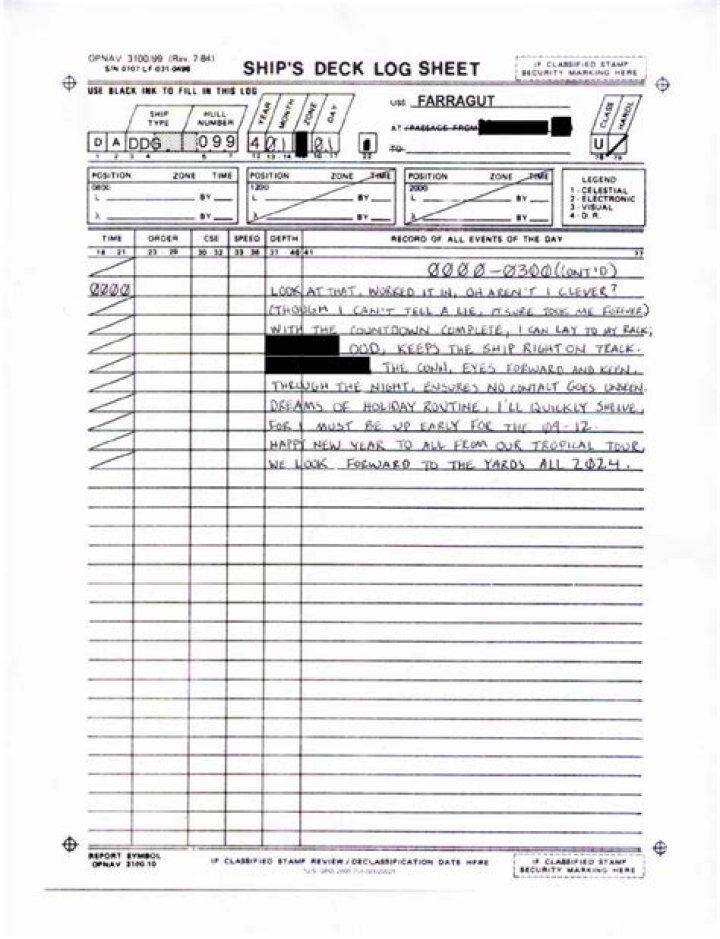 OPNAV 3100/99 (Rev. 7-84)
S/N 0107-LF-031-0498
SHIP'S DECK LOG SHEET
IF CLASSIFIED STAMP
SECURITY MARKING HERE
USE BLACK INK TO FILL IN THIS LOG
SHIP TYPE HULL NUMBER YEAR MONTH ZONE DAY
USS FARRAGUT
AT / PASSAGE FROM
TO
CLASS HANDL
D A DDG 099 4 01 01 U
1 2 3 4 5 7 12 13-14 15 16-17 22 78 79
POSITION ZONE TIME POSITION ZONE TIME POSITION ZONE TIME
0800 1200 2000
L BY L BY L BY
λ BY λ BY λ BY
LEGEND
1 - CELESTIAL
2 - ELECTRONIC
3 - VISUAL
4 - D.R.
TIME ORDER CSE SPEED DEPTH RECORD OF ALL EVENTS OF THE DAY
18 21 23 29 30 32 33 36 37 40 41 77
0000-0300 (CONT'D)
0000 LOOK AT THAT, WORKED IT IN, OH AREN'T I CLEVER?
(THOUGH I CAN'T TELL A LIE, IT SURE TOOK ME FOREVER)
WITH THE COUNTDOWN COMPLETE, I CAN LAY TO MY RACK;
OOD, KEEPS THE SHIP RIGHT ON TRACK.
THE CONN, EYES FORWARD AND KEEN,
THROUGH THE NIGHT, ENSURES NO CONTACT GOES UNSEEN.
DREAMS OF HOLIDAY ROUTINE, I'LL QUICKLY SHELVE,
FOR I MUST BE UP EARLY FOR THE 09-12.
HAPPY NEW YEAR TO ALL FROM OUR TROPICAL TOUR,
WE LOOK FORWARD TO THE YARDS ALL 2024.
REPORT SYMBOL
OPNAV 3100.10
IF CLASSIFIED STAMP REVIEW / DECLASSIFICATION DATE HERE
IF CLASSIFIED STAMP
SECURITY MARKING HERE